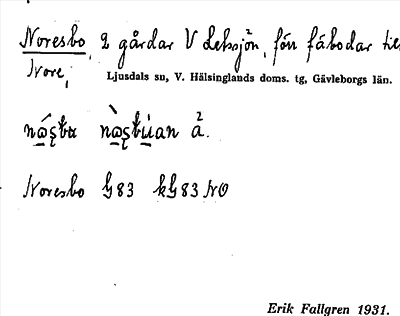 Noresbo, 2 gårdar V Letssjön, förr fäbodar till
Nore,
Ljusdals sn, V. Hälsinglands doms. tg, Gävleborgs län.
å.
Noresbo G83 kG83 NO
Erik Fallgren 1931.